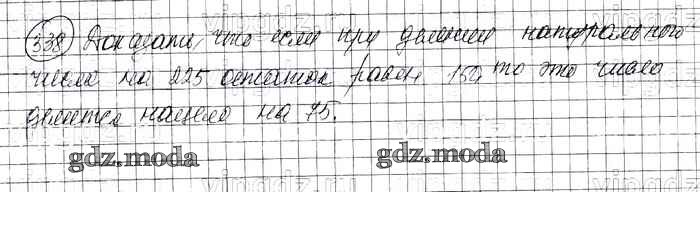 338 Доказать, что если при делении натурального
числа на 225 остаток равен 150, то это число
делится нацело на 75.
gdz.moda gdz.moda
vipgdz.ru vipgdz.ru